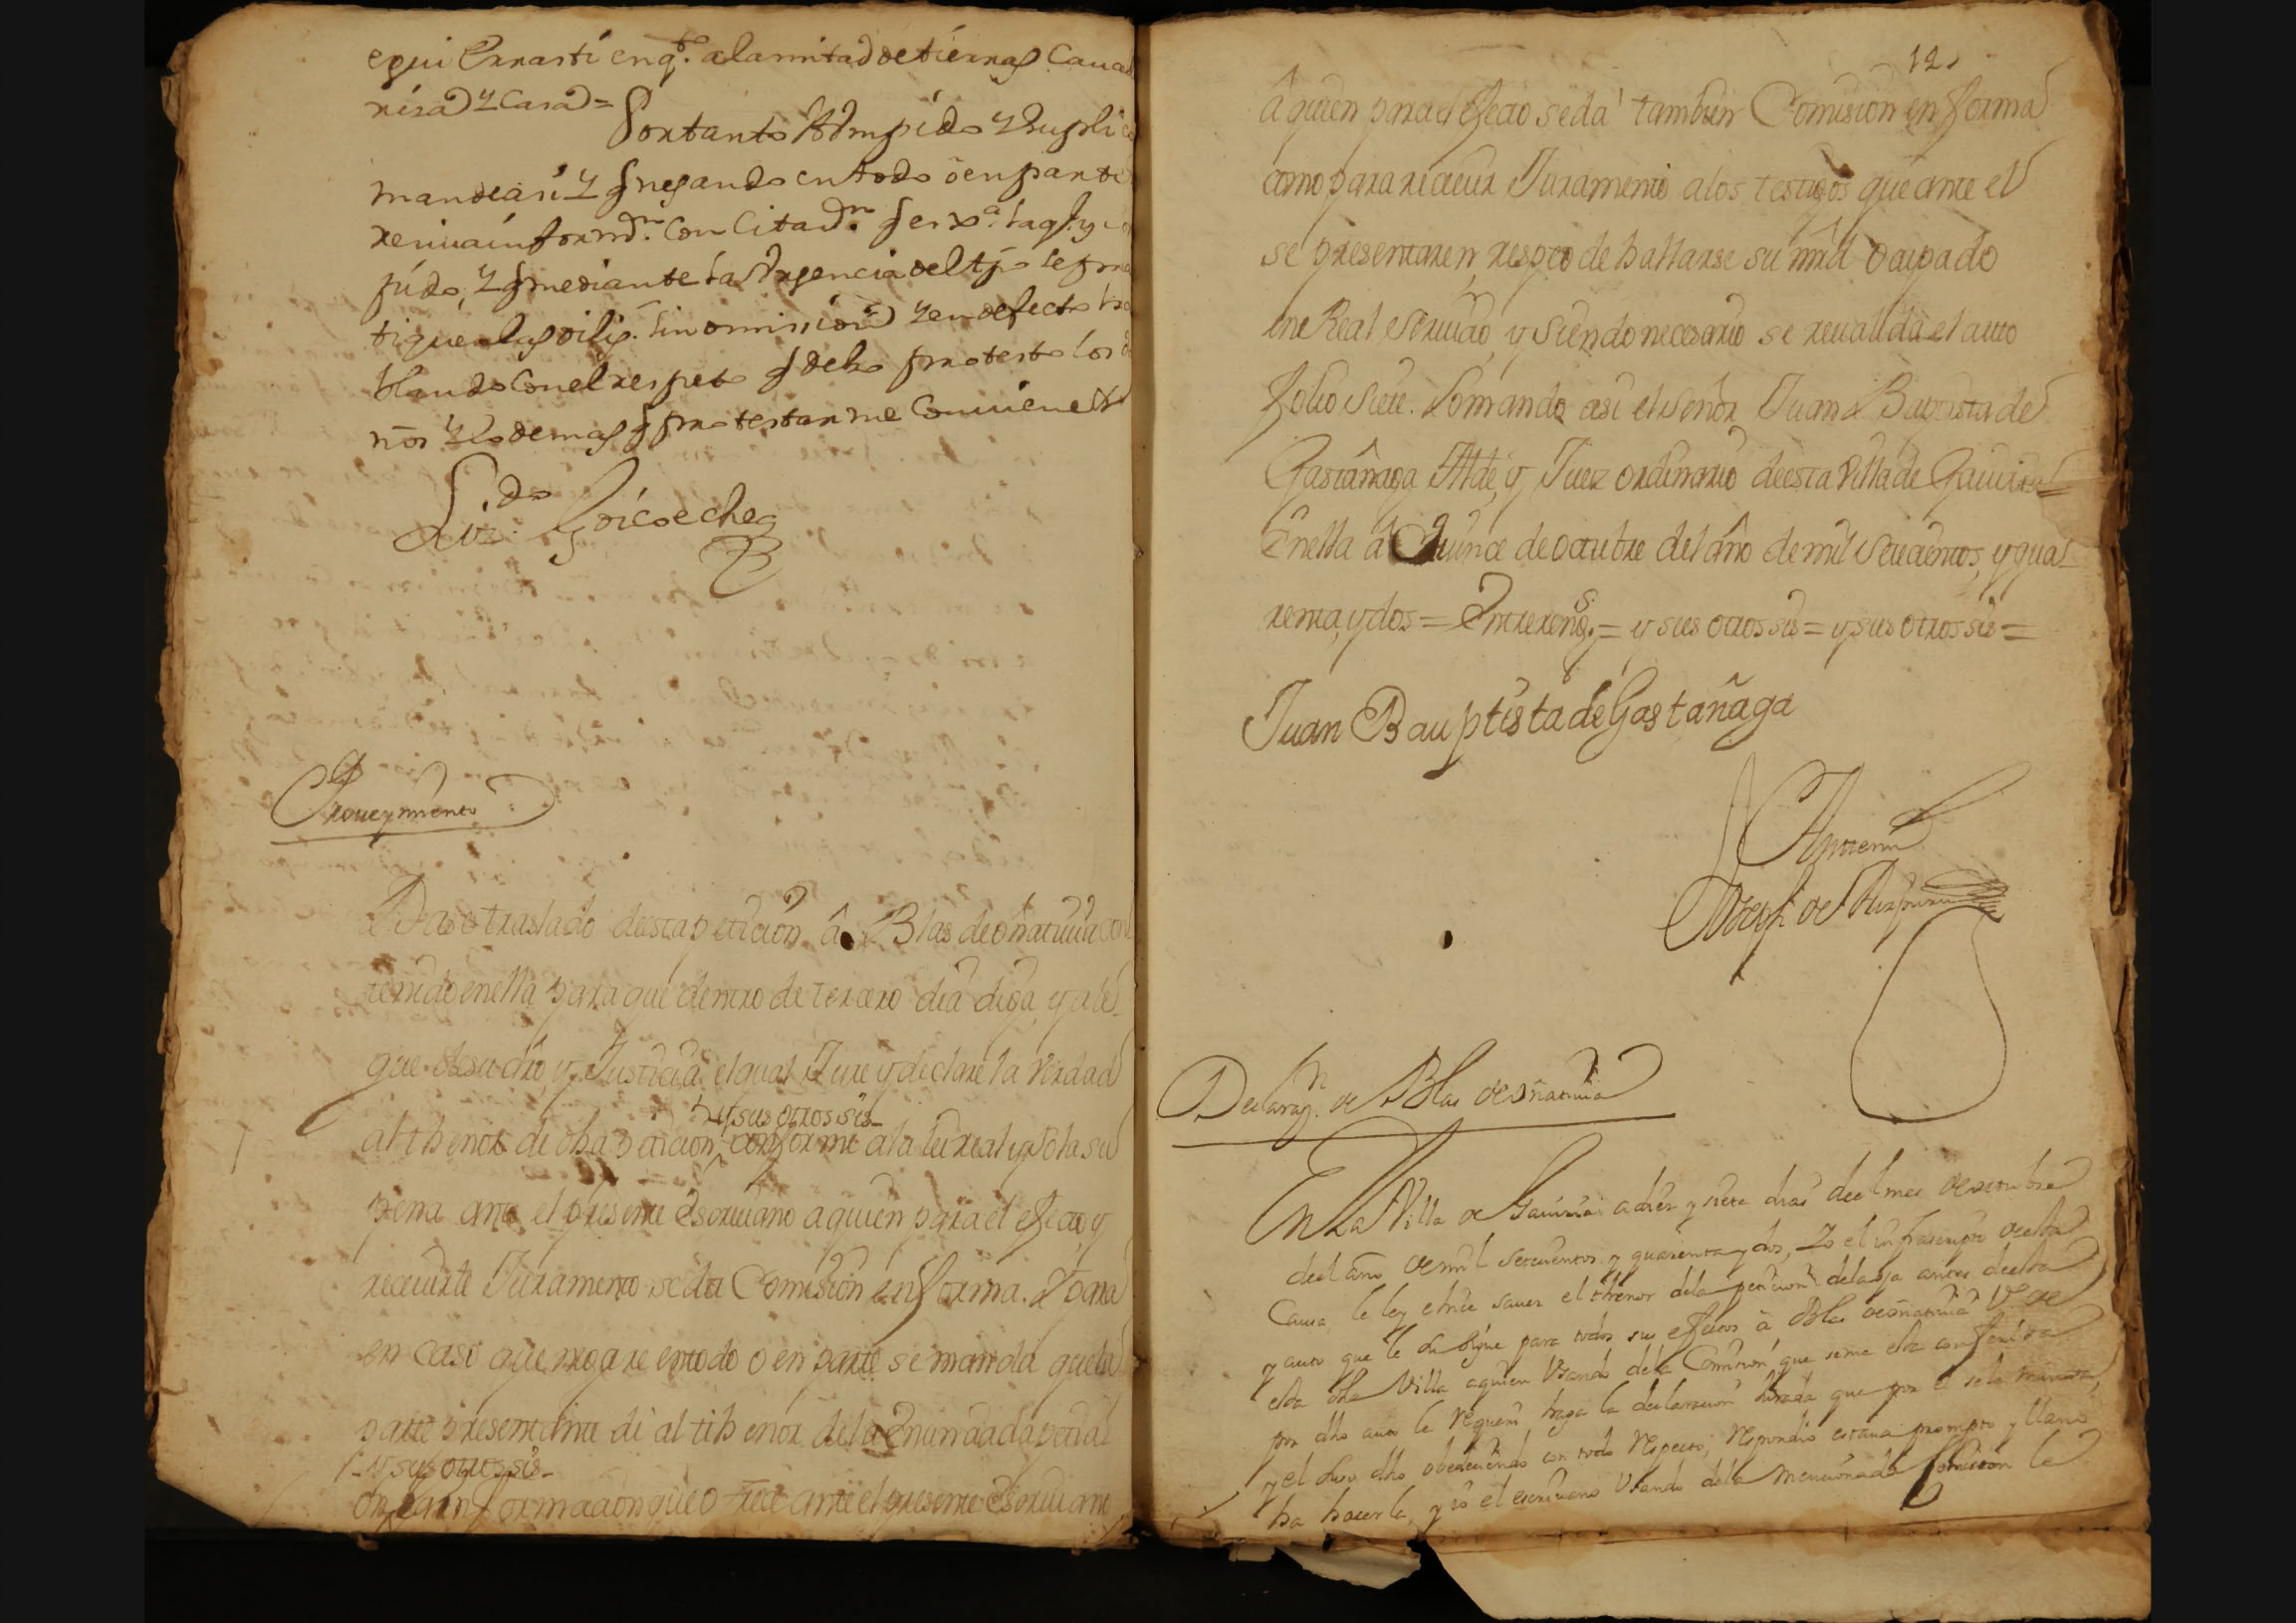 egui Errasti en q.to a la mitad de tierras Caua
riza y Casa =
Por tanto A Vm pido y Supli
mande asi y q negando en todo ô en parte
reciua informn. Con Citan.
pido, y q mediante la Vrgencia del tpo se prac
tiquen las dilig.s sin omision y en defecto ha
blando Con el respeto q debo protesto los d
ños y lo demas q protestar me Conuiene &
Liz.do Goicoechea
Proueymiento
Dase traslado de esta peticion â Blas de oñatiuia con
tenido en ella para que dentro de tercero dia diga, y ale
gue de su dro y Justicia, el qual Jure y declare la Verdad
y sus otros sis
al thenor de dha peticion conforme a la lei real y so la su
pena ante el presente Escriuano a quien para el efecto, y
receuirle Juramento se da Comision en forma. Y para
en caso que negare en todo o en parte se manda que la
parte presentante dê al tthenor de la enunciada peticⁿ
y sus otros sis
on la informacion que ofrece ante el presente Escriuano
12,
â quien para el efecto se da tambien Comision en forma
como para receuir Juramento a los testigos que ante el
se presentaren, respecto de hallarse su mrd ocupado
en el Real seruicio, y siendo necesario se reualida el auto
folio siete. Lo mando asi el señor Juan Baptista de
Gastañaga Alde, y Juez ordinario de esta Villa de Gauiria =
En ella â Quince de octubre del año de mil Setecientos, y qua
renta, y dos = Entrerengs. = y sus otros sis = y sus otros sis =
Juan Bauptista de Gastañaga
Ante mi
Joseph de
Declaraz.n de Blas de oñatiuia
En La Villa de Gauiria a diez y siete dias del mes de octubre
del año de mil setecientos y quarenta y dos, Yo el infrascripto de esta
Causa, le ley e hice sauer el thenor de la peticion de la oja antes de esta
y auto que le Sigue para todos sus efectos â Blas de oñatiuia V.o de
esta dha Villa a quien Vsando de la Comision, que se me esta conferida
por dho auto le requeri haga la declaracion Jurada que por el se le manda,
y el suso dho obedeciendo con todo respecto; respondio estaua prompto y llano
ha hacerla, y yo el escriuano Vsando de la mencionada Comision le